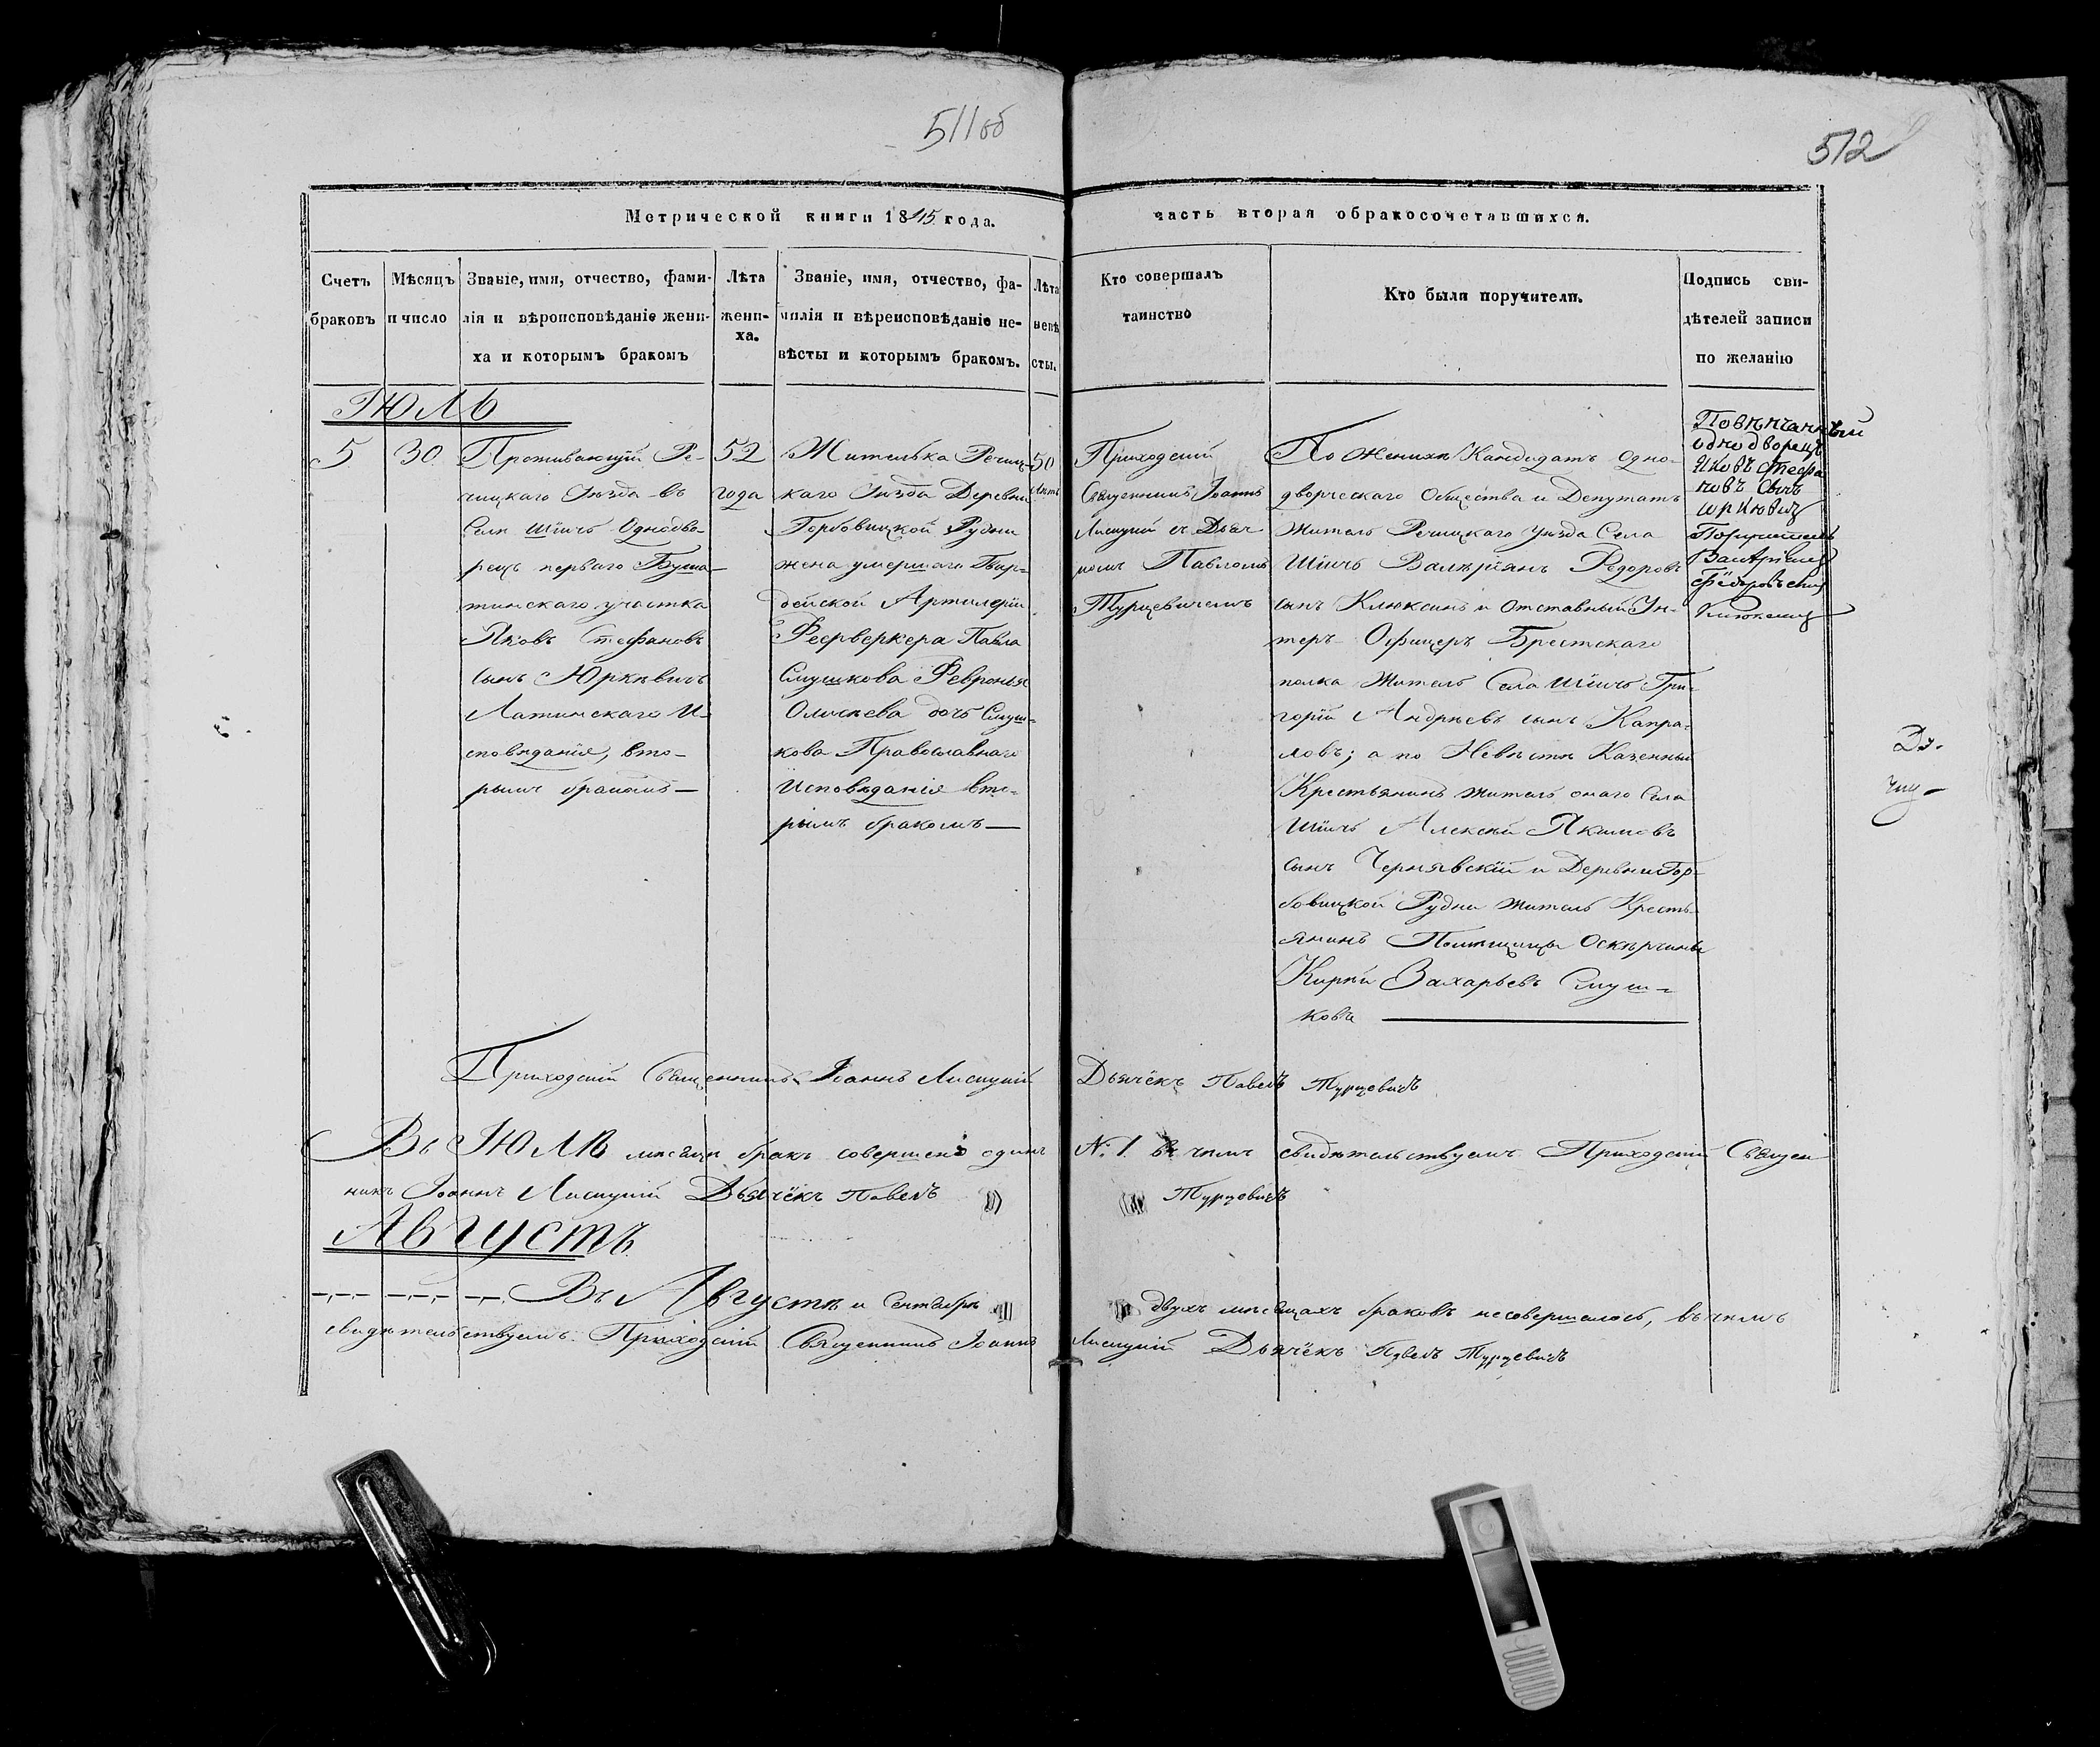 511об
512
Метрической книги 1845 года.
часть вторая обракосочетавшихся.
Счетъ браковъ
Мѣсяцъ и число
Званіе, имя, отчество, фами-
лія и вѣроисповѣданіе жени-
ха и которымъ бракомъ
Лѣта
жени-
ха.
Званіе, имя, отчество, фа-
милія и вѣреисповѣданіе не-
вѣсты и которымъ бракомъ.
Лѣта
невѣ
сты.
Кто совершалъ
таинство
Кто были поручители.
Подпись сви-
дѣтелей записи
по желанію
Іюль
5
30
Проживающій Ре-
чицкаго Уѣзда въ
Селѣ Шіичь Однодво-
рецъ перваго
участка
Яковъ Стефановъ
сынъ Юркѣвичь
Латинскаго И-
сповѣданія, вто-
рымъ бракомъ—
52
года
Жителька Речиц-
каго Уѣзда Деревни
Горбовицкой Рудни
жена умершаго Гвар-
дейской Артилеріи
Феерверкера Павла
Слушкова Февронья
дочь Слуш-
кова Православнаго
Исповѣданія вто-
рымъ бракомъ—
50
лѣтъ
Приходскій
Священникъ Іоаннъ
Лисицкій съ Дьяч-
комъ Павломъ
Турцевичемъ
По Женихѣ Кандидатъ Одно-
дворческаго Общества и Депутатъ
житель Речицкаго уѣзда Села
Шіичь Валѣріянъ Федоровъ
сынъ Клюксинъ и Отставный Ун-
теръ-Офицеръ Брестскаго
полка житель Села Шіичь Гри-
горій Андрѣевъ сынъ Капра-
ловъ; а по Невѣстѣ Казенный
Крестьянинъ житель онаго Села
Шіичь Алексѣй Якимовъ
сынъ Чернявскій и Деревни Гор-
бовицкой Рудни житель Кресть-
янинъ Помѣщицы Оскѣрчины
Кирѣй Захарьевъ Слуш-
ковъ
Повѣнчанный
однодворецъ
Яковъ Стефа
новъ Сынъ
Поручитель
Приходскій Священникъ Іоаннъ Лисицкій Дьячёкъ Павелъ Турцевичъ
Въ Іюлѣ мѣсяцѣ бракъ совершенъ одинъ №: 1. въ чемъ свидѣтельствуемъ Приходскій Священ
никъ Іоаннъ Лисицкій Дьячёкъ Павелъ Турцевичъ
Августъ
Въ Августѣ и Сентябрѣ двухъ мѣсяцахъ браковъ несовершалось, въ чемъ
свидѣтельствуемъ: Приходскій Священникъ Іоаннъ Лисицкій Дьячёкъ Павелъ Турцевичъ